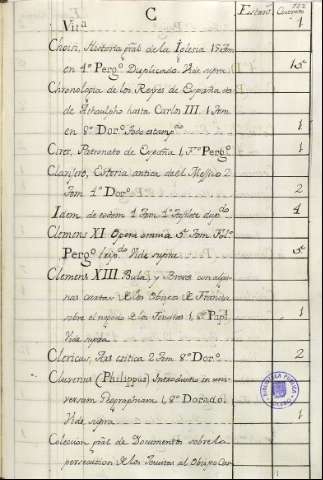 C
Estan.^s Quadern.^s
Vit.^a 1
Choisi, Historia gñal de la Iglesia 15 Tom
en 4.º Perg.º Duplicado. Vide supra 15
Chronologia de los Reyes de España de
de Athaulpho hasta Carlos III. 1 Tom
en 8.º Dor.º 1
Patronato de España 1, F.º Perg.º 1
Storia antica del Messico 2
Tom 4.º Dor.º 2
Idem de eodem 4 Tom 4.º 4
Clemens XI Opera omnia 5 Tom Fol.º
Perg.º Vide supra 5
Clemens XIII. Bula, y Breve con algu-
nas cartas de los Obispos de Francia
sobre el negocio de los Jesuitas 1, 8.º Pap.l 1
Vide supra
Clericus, Ars critica 2 Tom 8.º Dor.º 2
Cluverius (Philippus) Introductio in uni-
versam Geographiam 1, 8.º Dorado. 1
Vide supra
Coleccion gñal de Documentos sobre la
persecucion de los Jesuitas al Obispo Car-
BIBLIOTECA PUBLICA